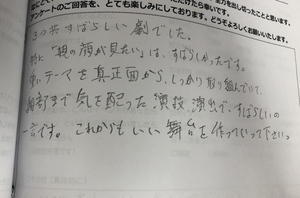 アンケートのご回答を、とても楽しみにしております。どうぞよろしくお願いいたします。
3つ共すばらしい劇でした。
特に「親の顔が見たい」は、すばらしかったです。
重いテーマを真正面から、しっかり取り組んでいて、
細部まで気を配った演技、演出で、すばらしいの
一言です。これからもいい舞台を作っていって下さいっ